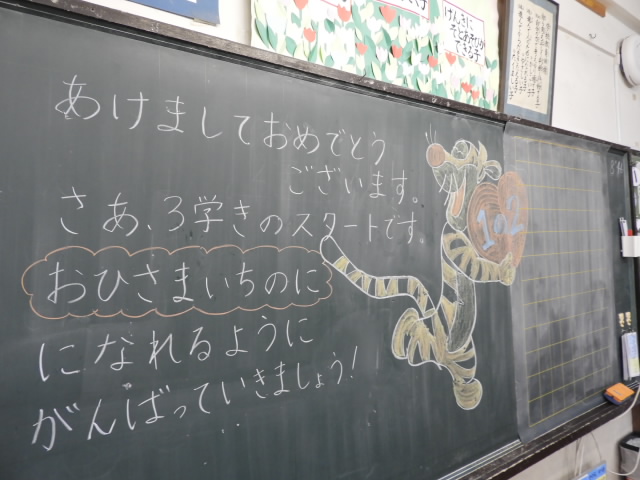 げんきに
そとあそびが
できる子
あけましておめでとう
ございます。
さあ、3学きのスタートです。
おひさまいちのに
になれるように
がんばっていきましょう!
1の2